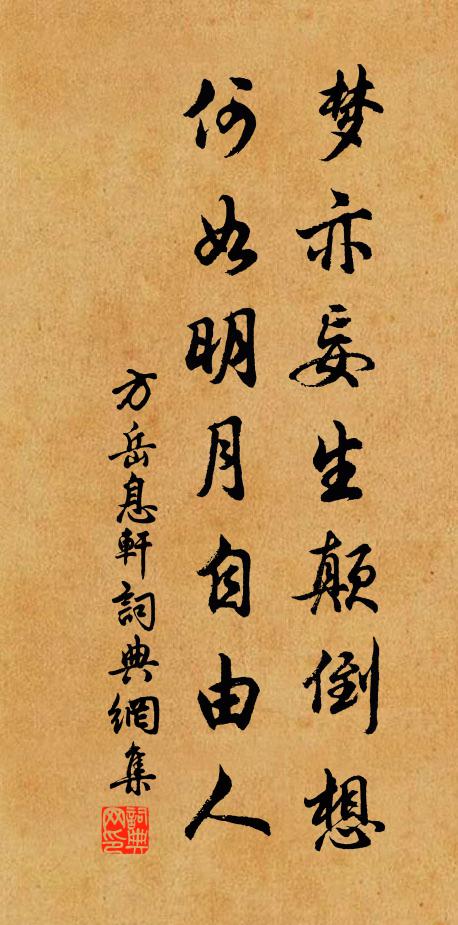 梦亦妄生颠倒想
何如明月自由人
方岳息軒詞典網集
詞典网印